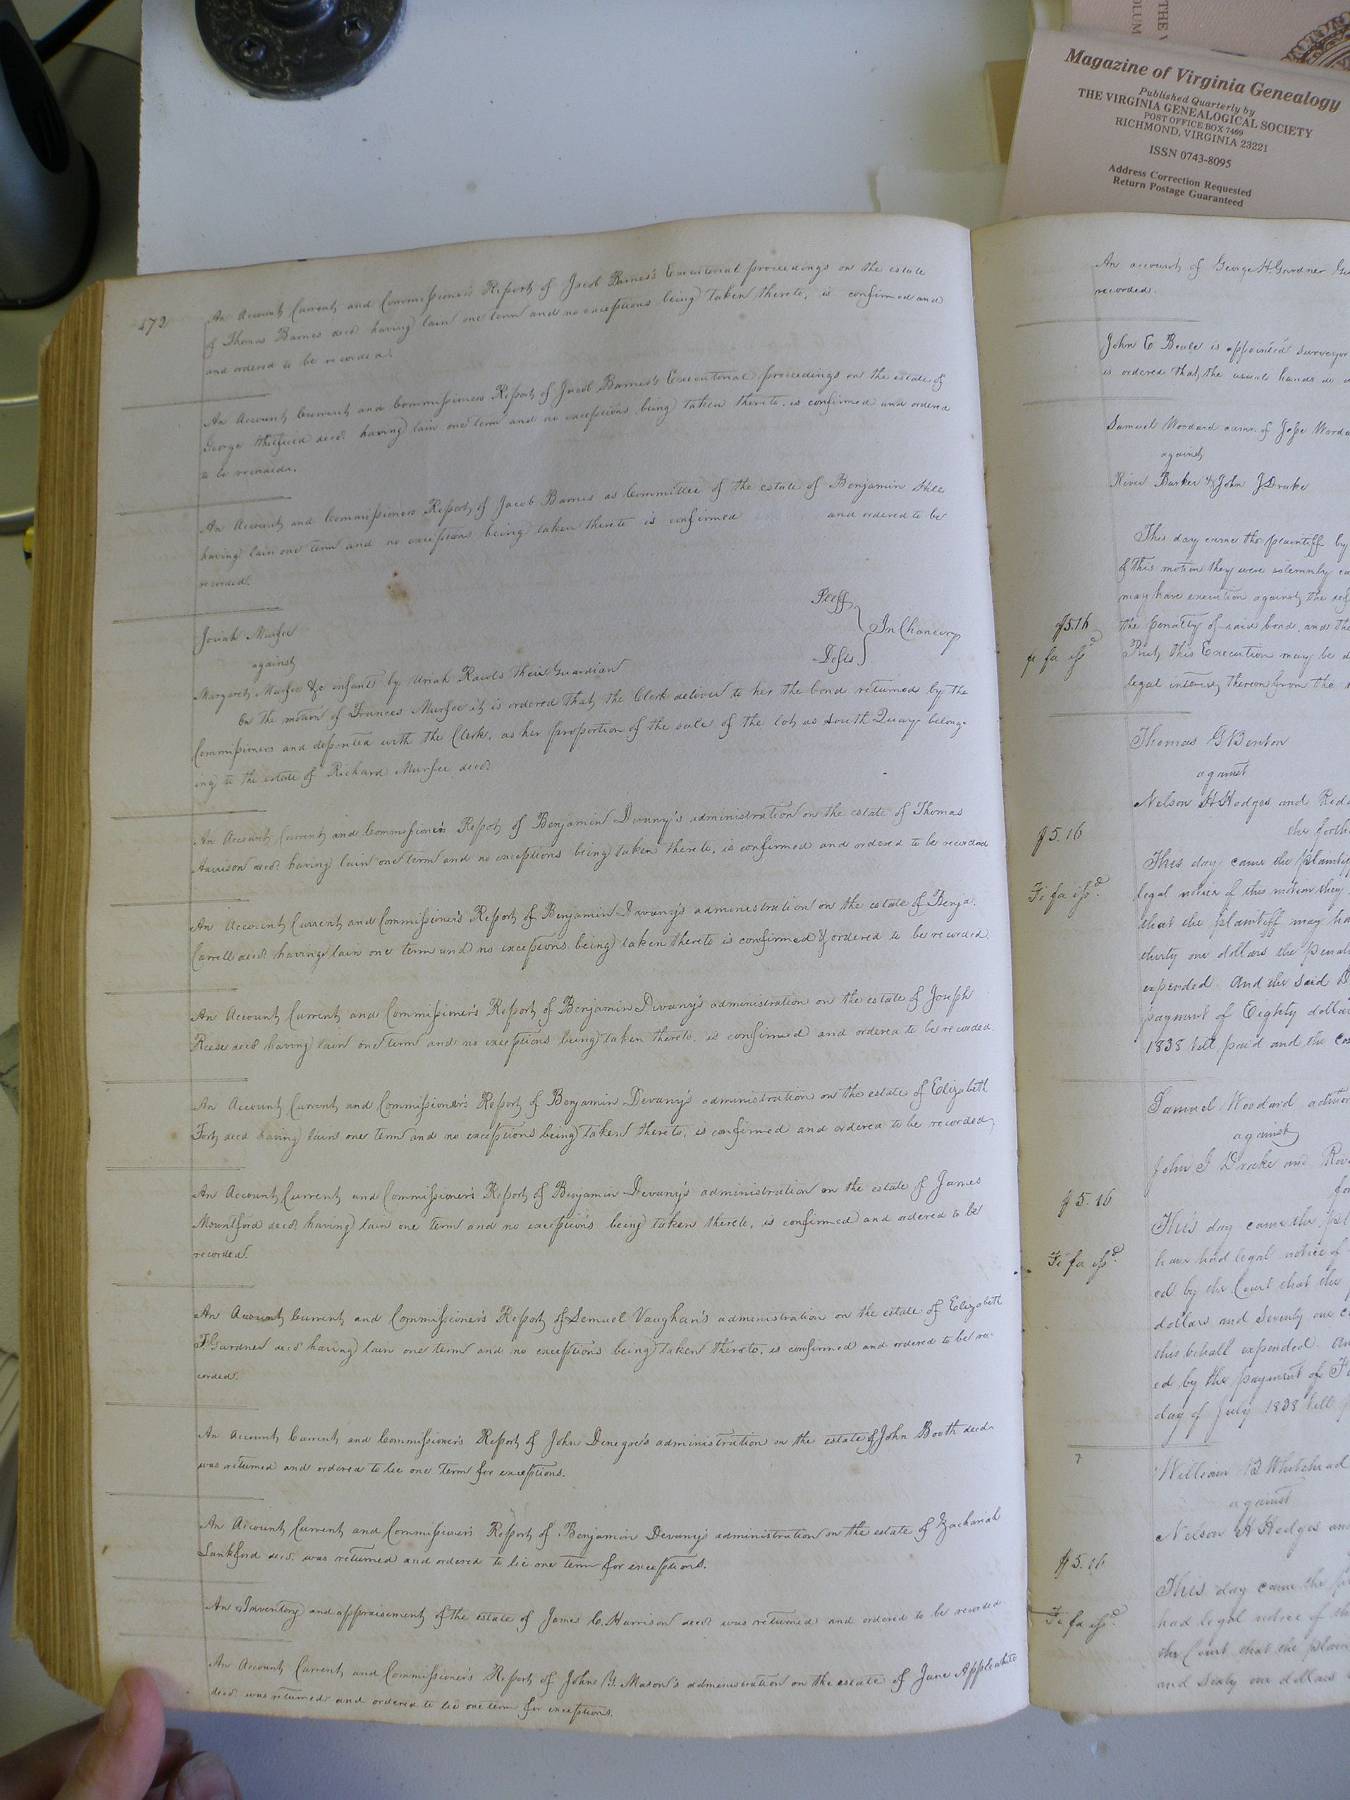 Magazine of Virginia Genealogy
Published Quarterly by
THE VIRGINIA GENEALOGICAL SOCIETY
POST OFFICE BOX 7469
RICHMOND, VIRGINIA 23221
ISSN 0743-8095
Address Correction Requested
Return Postage Guaranteed
THE V
OLUM
572
An Account Current and Commissioner's Report of Jacob Barnes's Executorial proceedings on the estate
of Thomas Barnes decd having lain one term and no exceptions being taken thereto, is confirmed and
and ordered to be recorded.
An Account Current and Commissioners Report of Jacob Barnes's Executorial proceedings on the estate of
George decd having lain one term and no exceptions being taken thereto, is confirmed and ordered
to be recorded.
An Account and Commissioners Report of Jacob Barnes as Committee of the estate of Benjamin
having lain one term and no exceptions being taken thereto is confirmed and ordered to be
recorded.
Josiah Murfee Plff
against In Chancery
Margaret Murfee &c infants by Uriah Rawls their Guardian Defts
On the motion of Frances Murfee it is ordered that the Clerk deliver to her the bond returned by the
Commissioners and deposited with the Clerk, as her proportion of the sale of the lots as South Quay belong-
ing to the estate of Richard Murfee decd
An Account Current and Commissioner's Report of Benjamin Devany's administration on the estate of Thomas
Harrison decd having lain one term and no exceptions being taken thereto, is confirmed and ordered to be recorded
An Account Current and Commissioner's Report of Benjamin Devany's administration on the estate of Benja.
Carrell decd having lain one term and no exceptions being taken thereto is confirmed & ordered to be recorded.
An Account Current and Commissioner's Report of Benjamin Devany's administration on the estate of Joseph
Reese decd having lain one term and no exceptions being taken thereto, is confirmed and ordered to be recorded.
An Account Current and Commissioner's Report of Benjamin Devany's administration on the estate of Elizabeth
Fort decd having lain one term and no exceptions being taken thereto, is confirmed and ordered to be recorded,
An Account Current and Commissioner's Report of Benjamin Devany's administration on the estate of James
Mountford decd having lain one term and no exceptions being taken thereto, is confirmed and ordered to be
recorded.
An Account Current and Commissioner's Report of Samuel Vaughan's administration on the estate of Elizabeth
F. Gardner decd having lain one term and no exceptions being taken thereto, is confirmed and ordered to be re-
corded.
An Account Current and Commissioner's Report of John Denegre's administration on the estate of John Booth decd.
was returned and ordered to lie one term for exceptions.
An Account Current and Commissioner's Report of Benjamin Devany's administration on the estate of Zachariah
Lankford decd. was returned and ordered to lie one term for exceptions.
An Inventory and appraisement of the estate of James C. Harrison decd was returned and ordered to be recorded
An Account Current and Commissioner's Report of John Y. Mason's administration on the estate of Jane Applewhite
decd was returned and ordered to lie one term for exceptions.
An account of George H. Gardner
recorded.
John E Beale is appointed Surveyor
is ordered that the usual hands do
Samuel Woodard admr. of Jesse
against
River Barker & John J Drake
This day came the plaintiff by
of this motion they were solemnly
may have execution against the
$5.16 the penalty of said bond, and the
fi fa issd But, this Execution may be
legal interest thereon from the
Thomas G Benton
against
Nelson H Hodges and
$5.16 the forth
This day came the plaintiff
Fi fa issd. legal notice of this motion they
that the plaintiff may ha
thirty one dollars the penal
expended. And the said
payment of Eighty dollar
1838 till paid and the co
Samuel Woodard
against
John J Drake and
$5.16
This day came the pl
Fi fa issd. have had legal notice of
ed by the Court that the
dollars and Seventy one c
this behalf expended.
ed by the payment of
day of July 1838 till
7
William B Whitehead
against
Nelson H Hodges an
$5.16
This day came the
Fi fa issd. had legal notice of th
the Court that the plain
and sixty one dollars